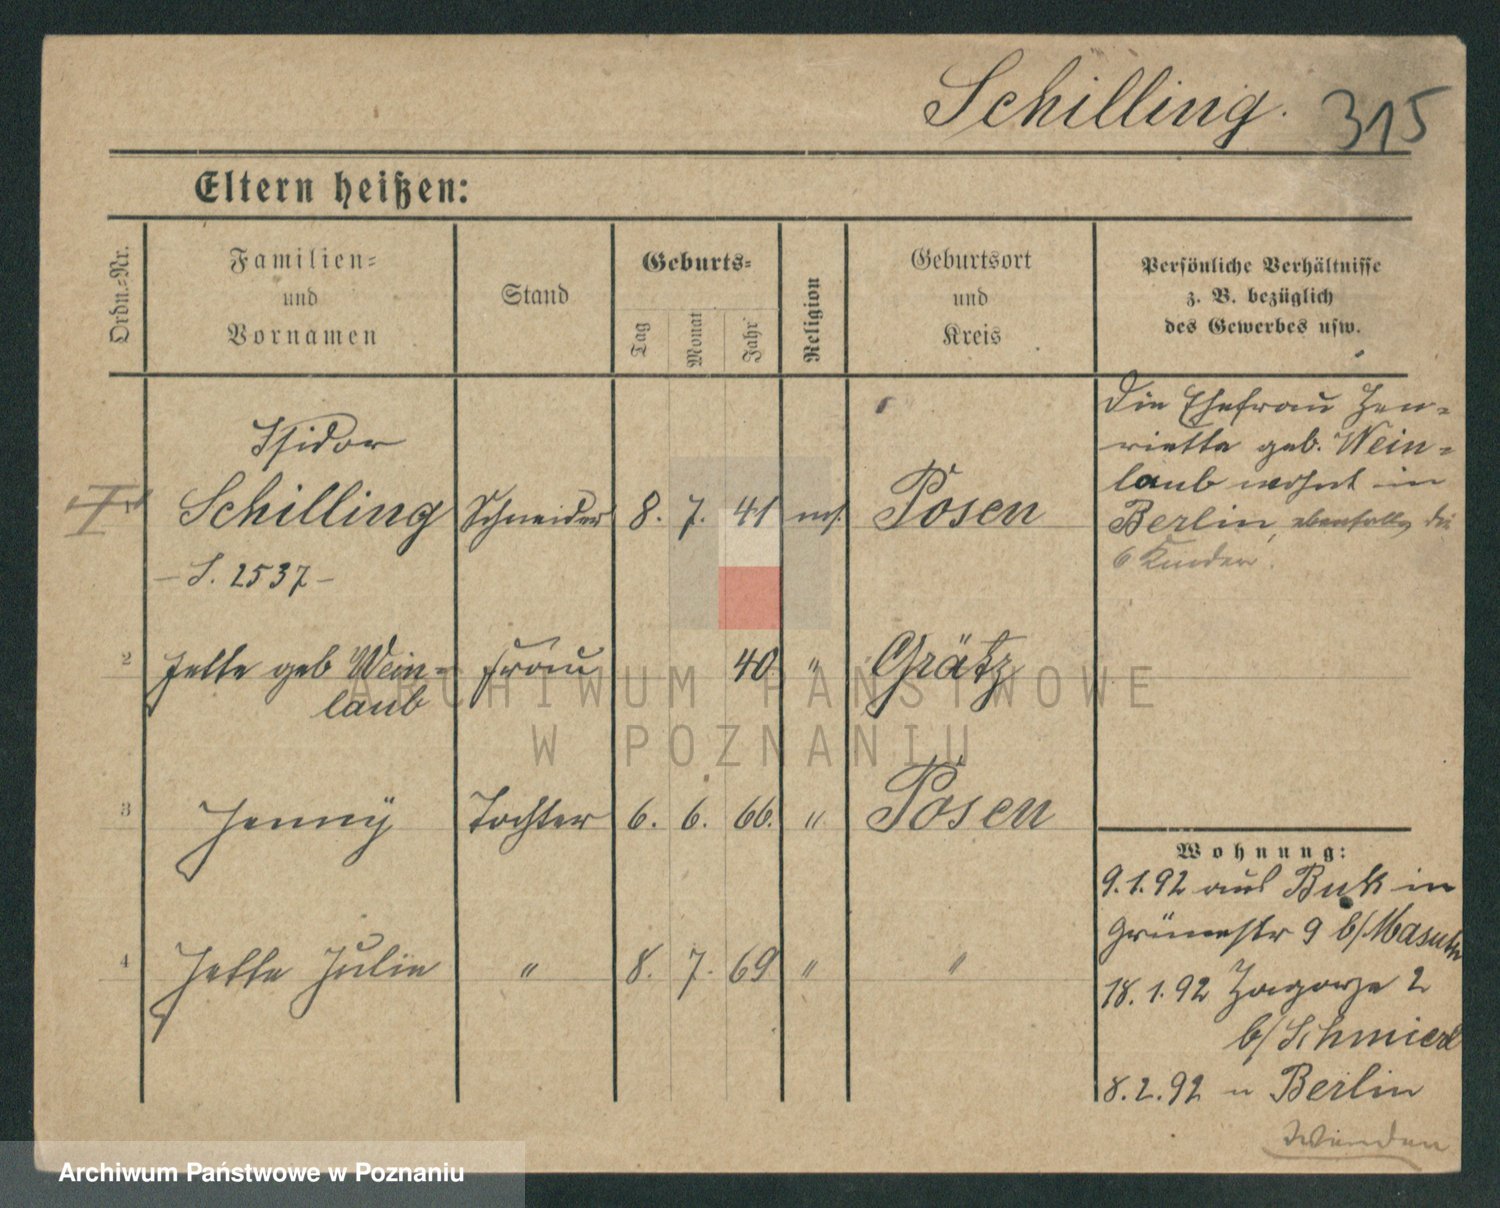 Schilling. 315
Eltern heißen:
Ordn.-Nr.
Familien-
und
Vornamen
Stand
Geburts-
Tag
Monat
Jahr
Religion
Geburtsort
und
Kreis
Persönliche Verhältnisse
z. B. bezüglich
des Gewerbes usw.
Isidor
1 Schilling Schneider 8. 7. 41 mos. Posen
– S. 2537 –
2 Jette geb Wein- Frau 40 " Grätz
laub
3 Jenny Tochter 6. 6. 66. " Posen
4 Jette Julie " 8. 7. 69 " "
Die Ehefrau Hen-
riette geb. Wein-
laub wohnt in
Berlin, ebenfalls die
6 Kinder.
Wohnung:
9.1.92 aus Buk in
Grünestr 9 b/
18.1.92 Zagorze 2
b/Schmied
8.2.92 n Berlin
Wenden
ARCHIWUM PAŃSTWOWE
W POZNANIU
Archiwum Państwowe w Poznaniu